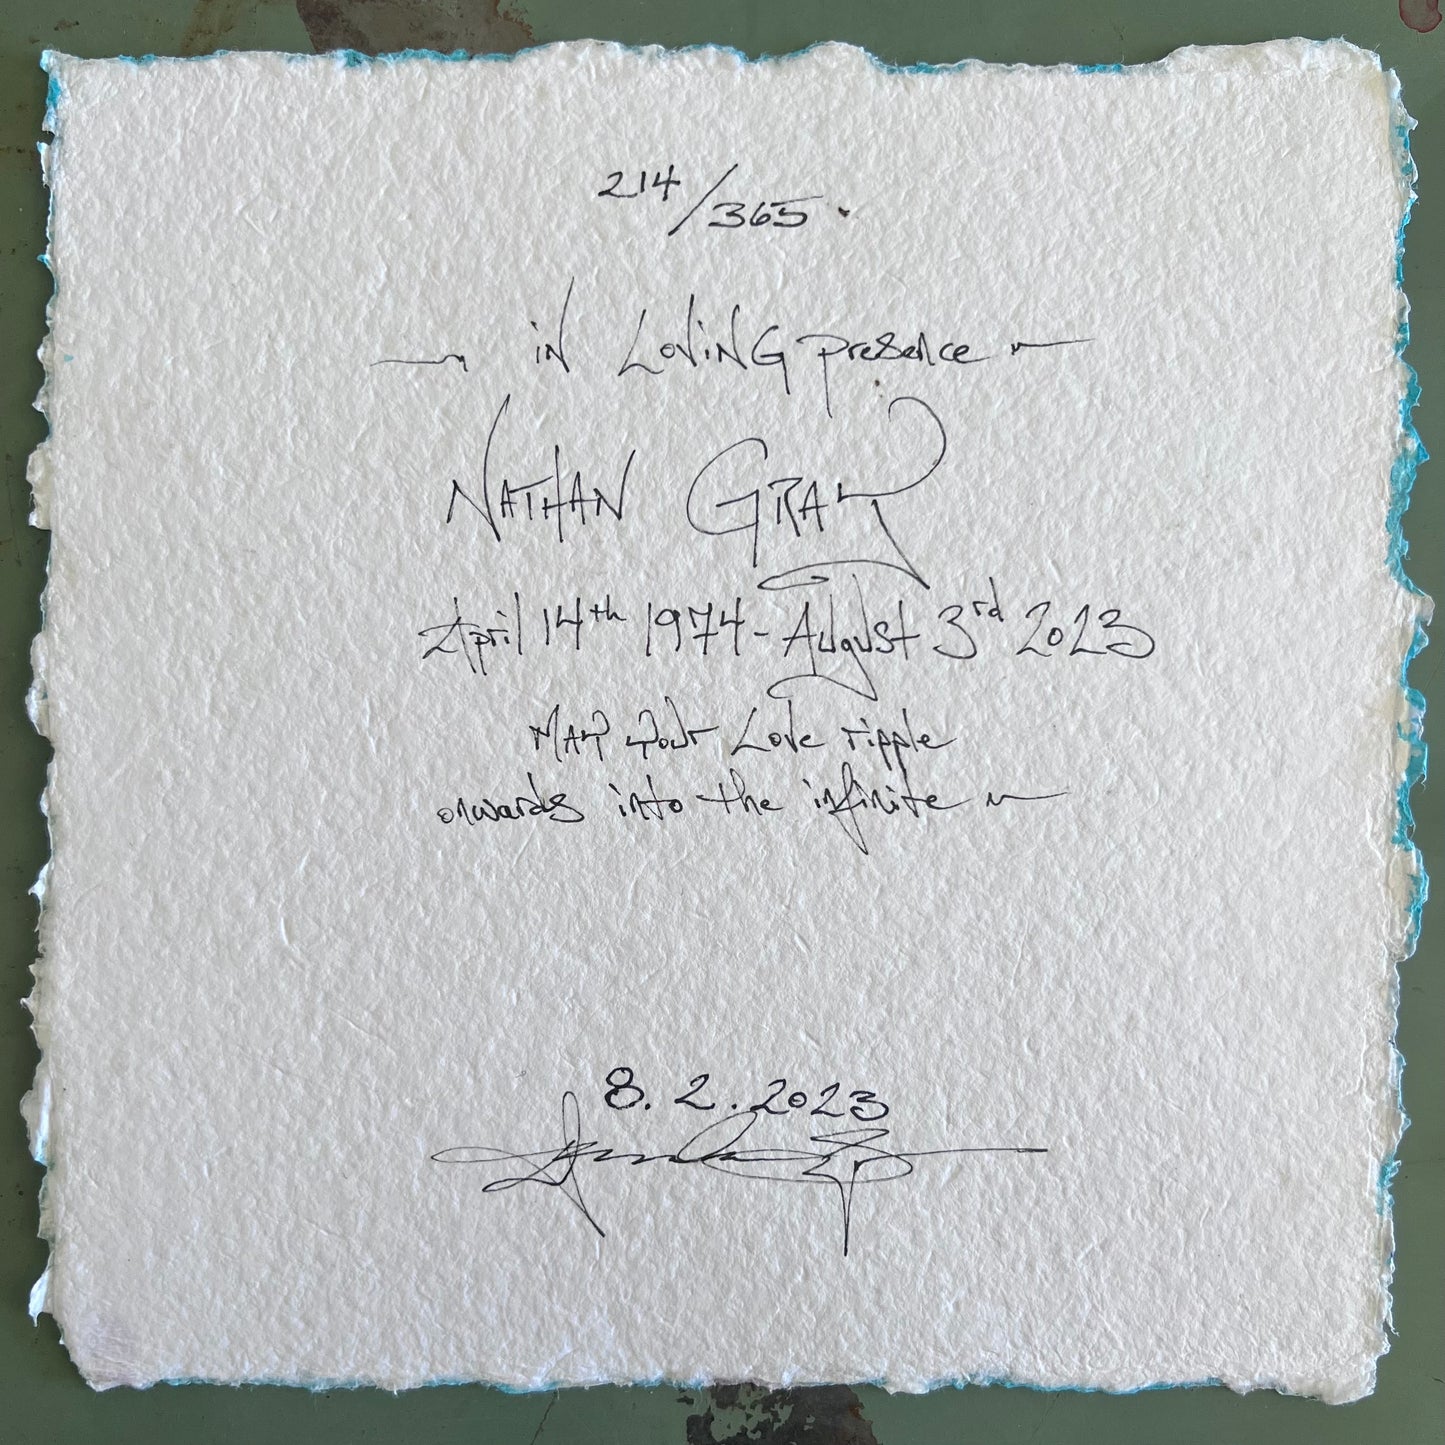 214/365.
~ in Loving presence ~
Nathan Gray
April 14th 1974 - August 3rd 2023
May your Love ripple
onwards into the infinite ~
8.2.2023